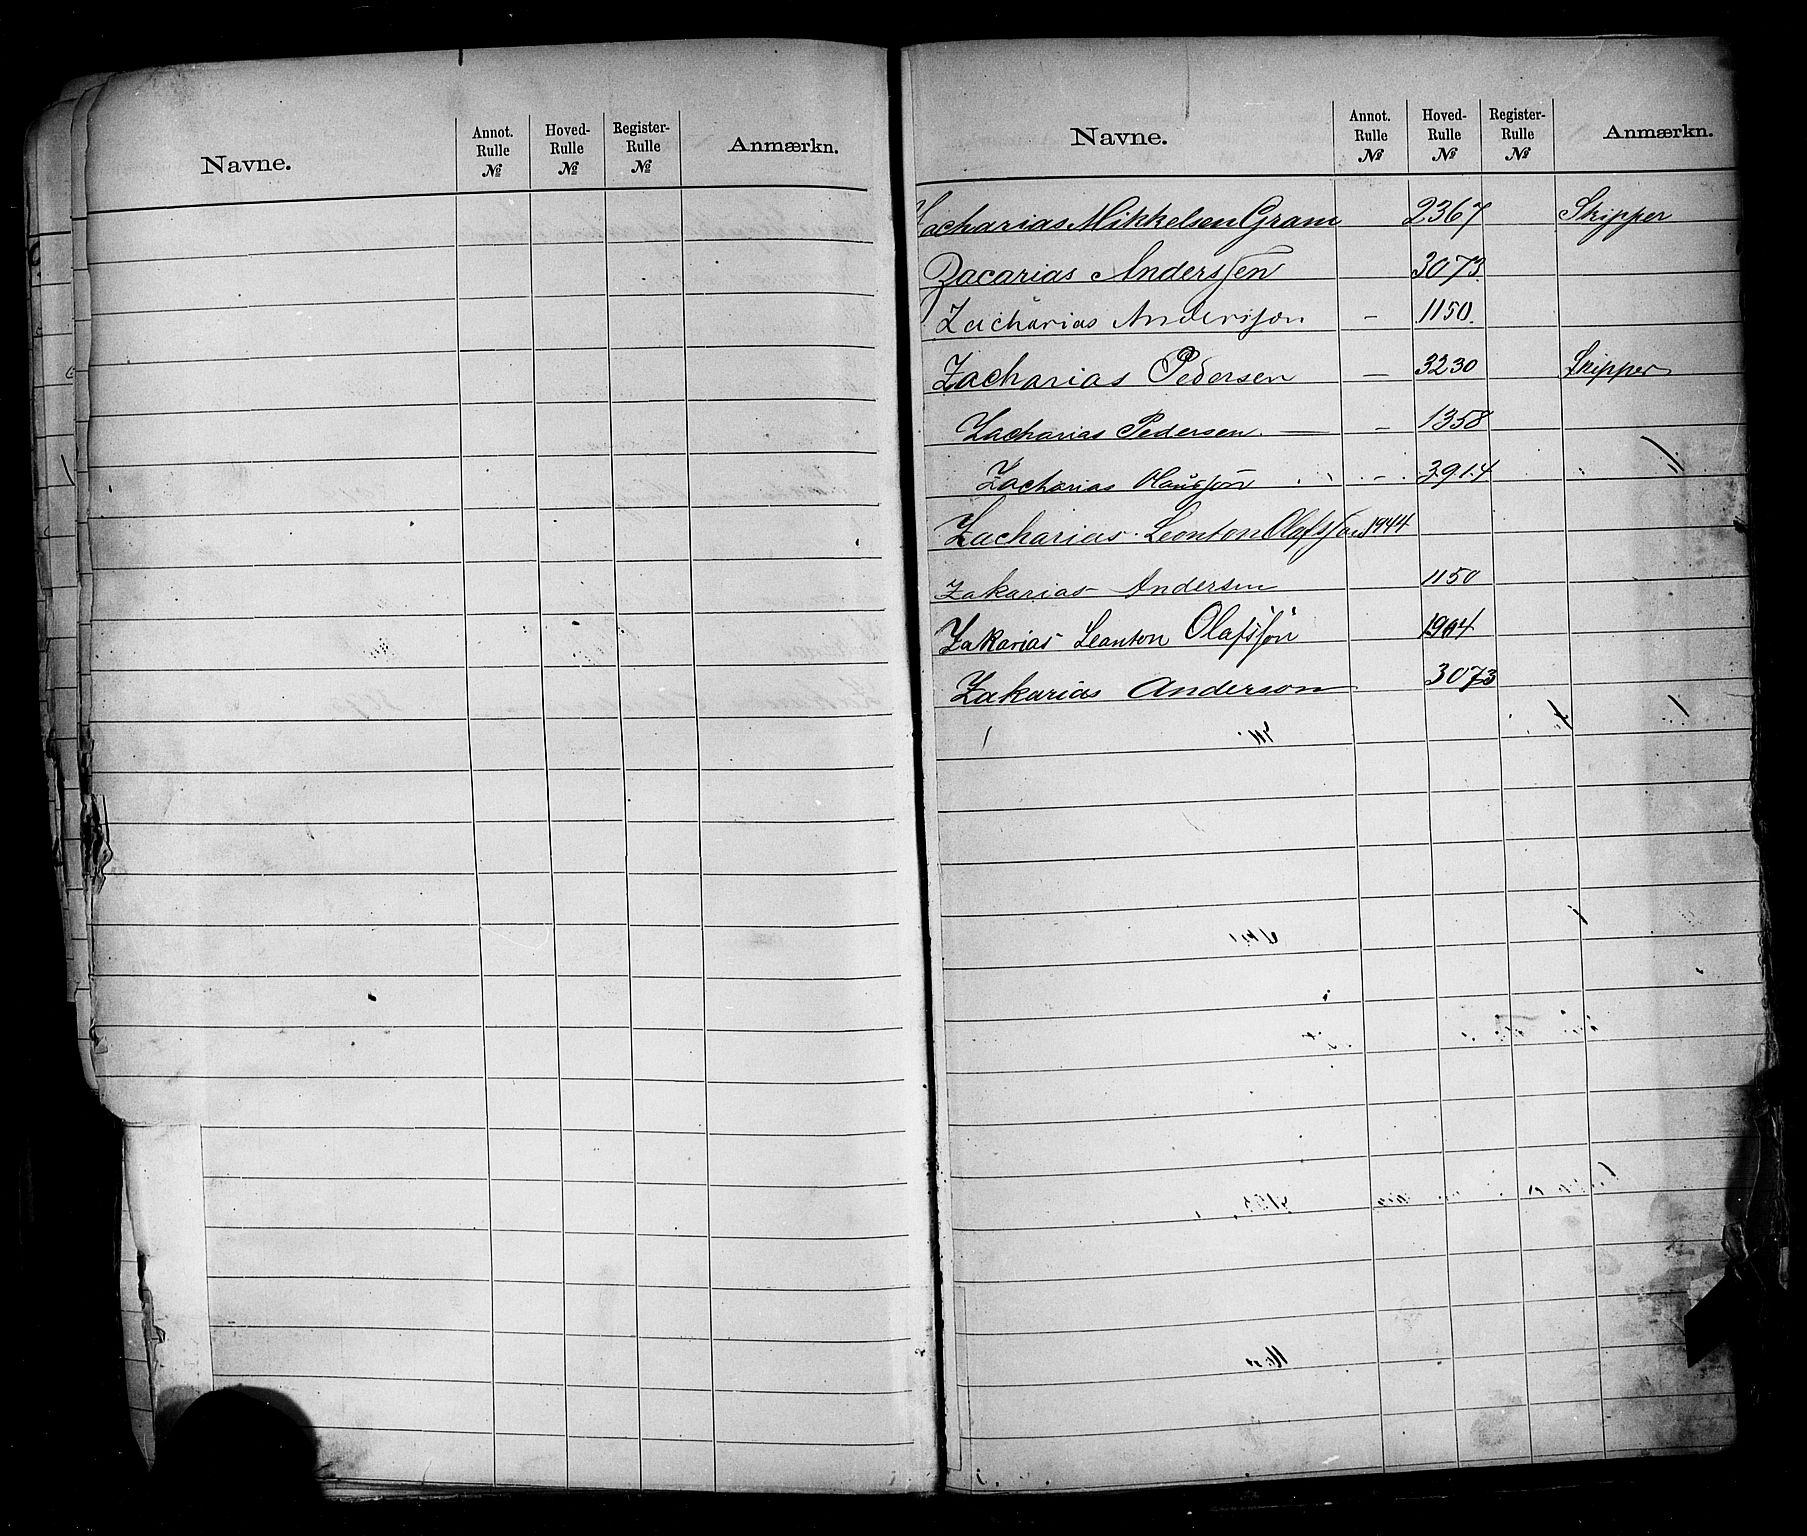 Navne. Annot. Rulle № Hoved- Rulle № Register- Rulle № Anmærkn.
Navne. Annot. Rulle № Hoved- Rulle № Register- Rulle № Anmærkn.
Zacharias Mikkelsen Gram 2367 Skipper
Zacarias Anderssen 3073
Zacharias Anderssøn — 1150.
Zacharias Pedersen — 3230 Skipper
Zacharias Pedersen. — – 1358
Zacharias Clausøn - 3914
Zacharias Leonton Olafssøn 1944
Zakarias Andersen 1150
Zakarias Leonton Olafssøn
Zakarias Anderson 3073